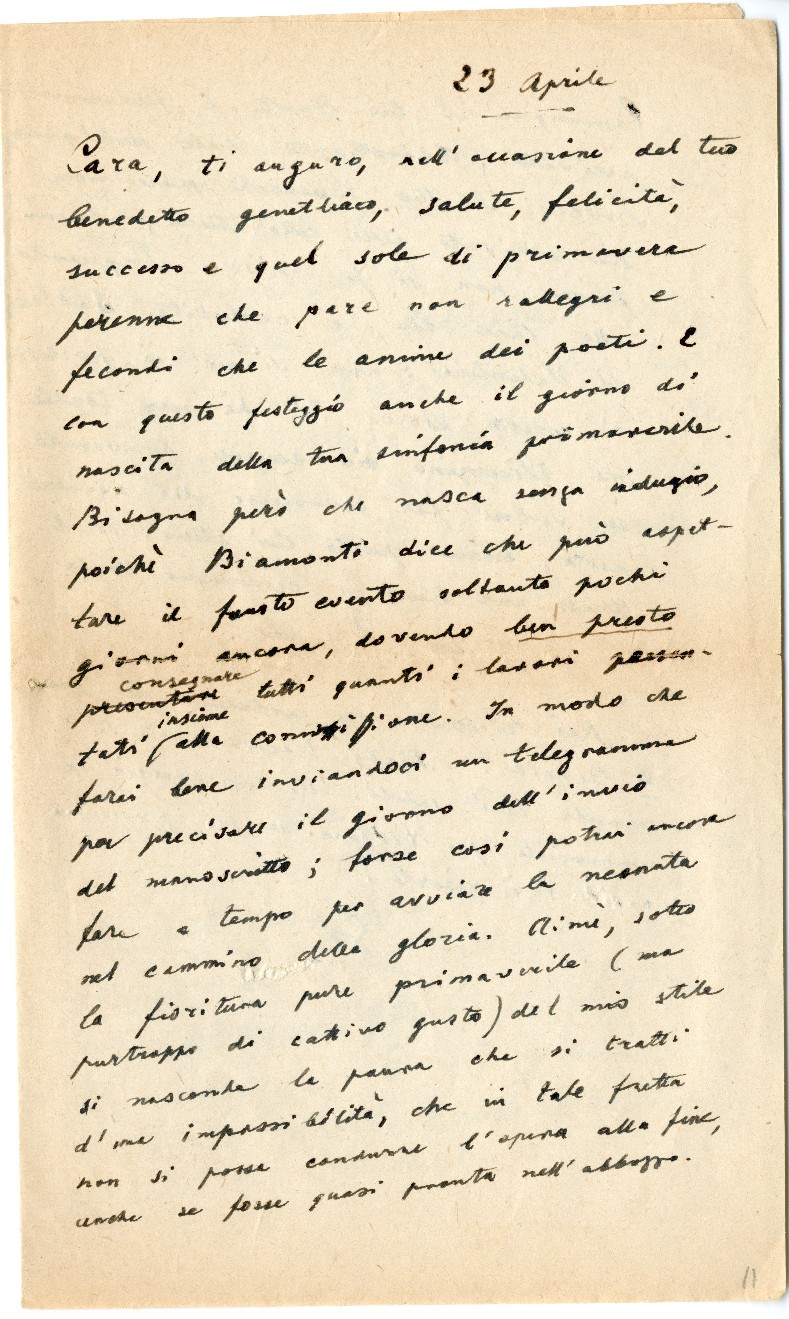 23 Aprile
Cara, ti auguro, nell'occasione del tuo
benedetto genetliaco, salute, felicità,
successo e quel sole di primavera
perenne che pare non rallegri e
fecondi che le anime dei poeti. E
con questo festeggio anche il giorno di
nascita della tua sinfonia primaverile.
Bisogna però che nasca senza indugio,
poichè Biamonti dice che può aspet-
tare il fausto evento soltanto pochi
giorni ancora, dovendo ben presto
consegnare
presentare tutti quanti i lavori presen-
insieme
tati alla commissione. In modo che
farai bene inviandoci un telegramma
per precisare il giorno dell'invio
del manoscritto; forse così potrai ancora
fare a tempo per avviare la neonata
nel cammino della gloria. Aimè, sotto
la fioritura pure primaverile (ma
purtroppo di cattivo gusto) del mio stile
si nasconde la paura che si tratti
d'una impossibilità, che in tale fretta
non si possa condurre l'opera alla fine,
anche se fosse quasi pronta nell'abbozzo.
11